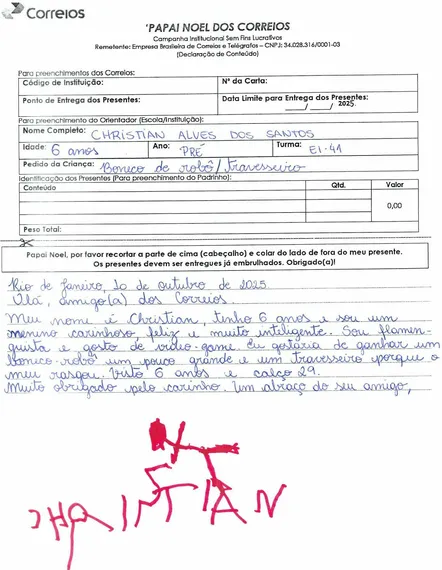 Correios
'PAPAI NOEL DOS CORREIOS
Campanha Institucional Sem Fins Lucrativos
Remetente: Empresa Brasileira de Correios e Telégrafos – CNPJ: 34.028.316/0001-03
(Declaração de Conteúdo)
Para preenchimentos dos Correios:
Código de Instituição: Nº da Carta:
Ponto de Entrega dos Presentes: Data Limite para Entrega dos Presentes:
___/___/ 2025.
Para preenchimento do Orientador (Escola/Instituição):
Nome Completo: CHRISTIAN ALVES DOS SANTOS
Idade: 6 anos Ano: PRÉ Turma: EI-41
Pedido da Criança: Boneco de robô/travesseiro
Identificação dos Presentes (Para preenchimento do Padrinho):
Conteúdo Qtd. Valor
0,00
Peso Total:
Papai Noel, por favor recortar a parte de cima (cabeçalho) e colar do lado de fora do meu presente.
Os presentes devem ser entregues já embrulhados. Obrigado(a)!
Rio de Janeiro, 10 de outubro de 2025
Olá, amigo(a) dos Correios
Meu nome é Christian, tenho 6 anos e sou um
menino carinhoso, feliz e muito inteligente. Sou flamen-
guista e gosto de vídeo-game. Eu gostaria de ganhar um
boneco robô um pouco grande e um travesseiro porque o
meu rasgou. Visto 6 anos e calço 29.
Muito obrigado pelo carinho. Um abraço do seu amigo,
CHRISTIAN